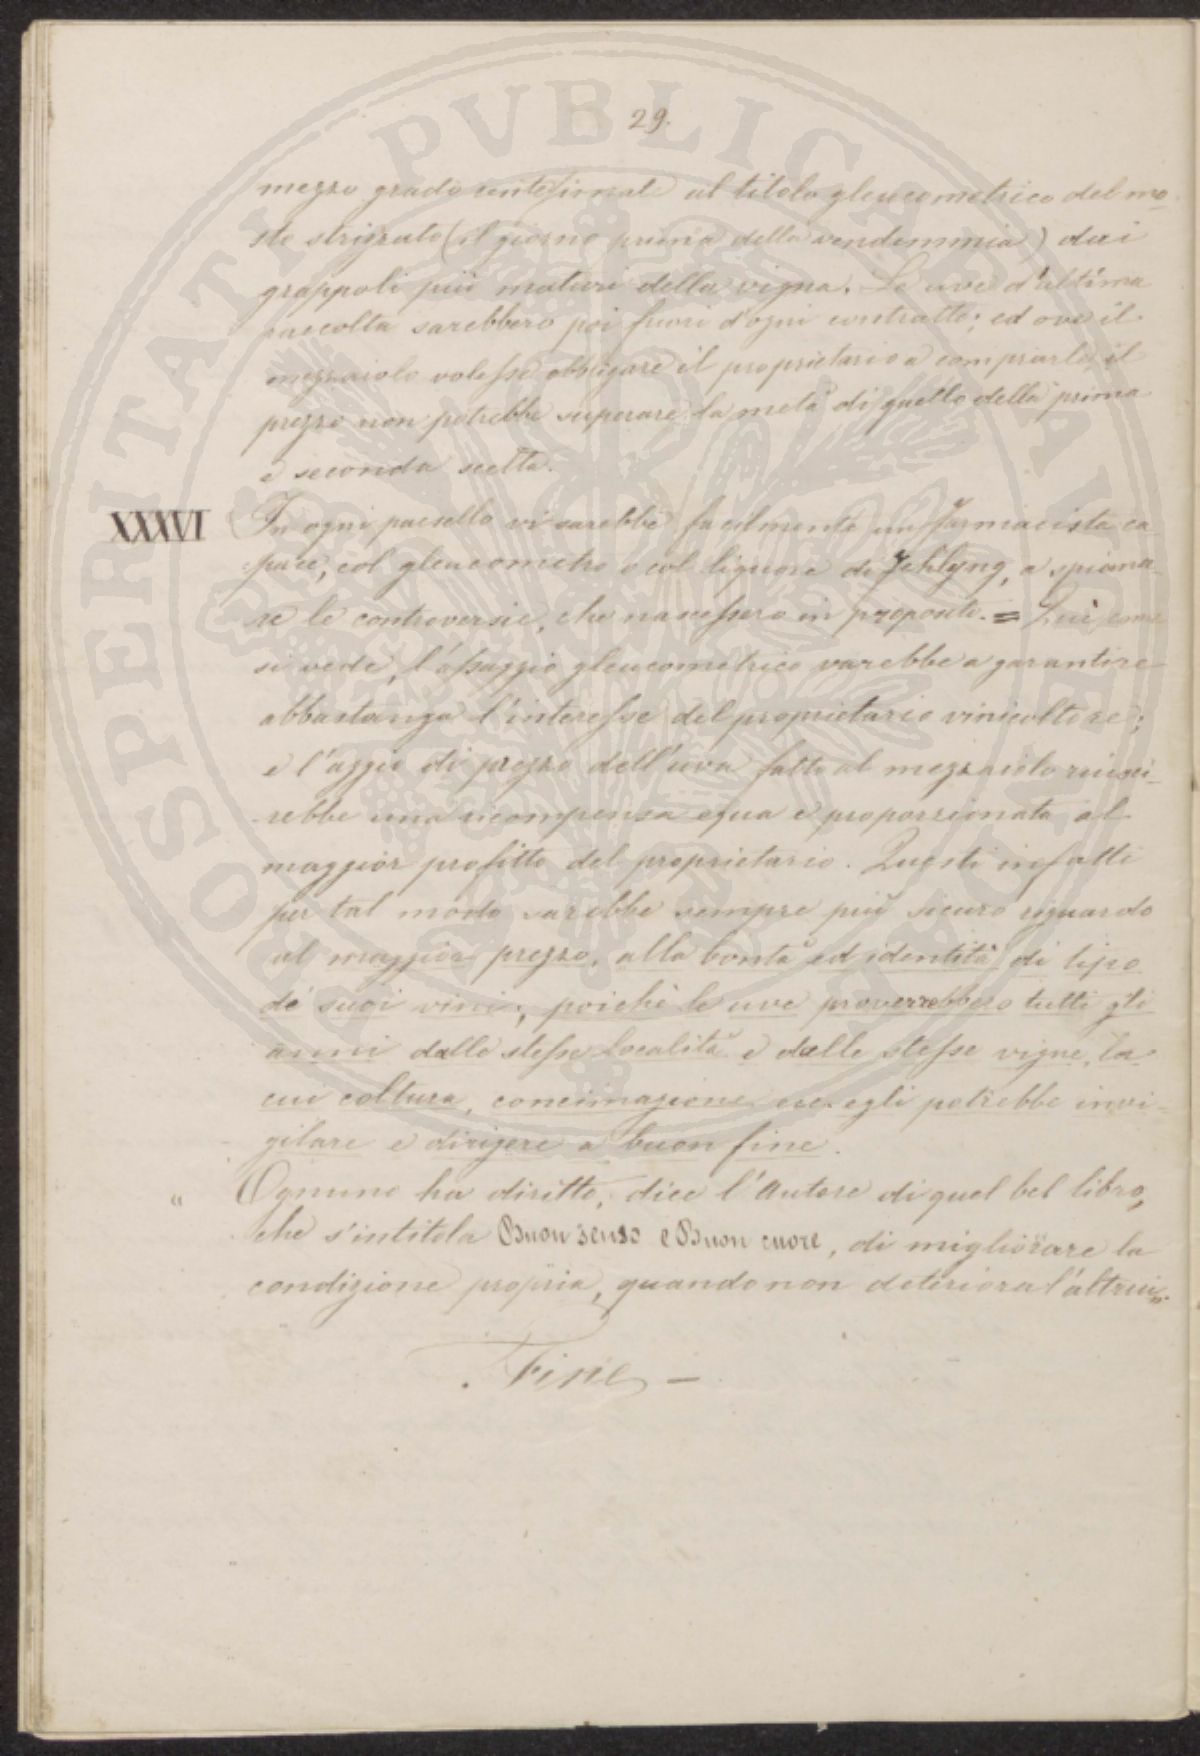 29.
mezzo grado centesimale al titolo gleucometrico del mo-
sto strizzato (il giorno prima della vendemmia) dai
grappoli più maturi della vigna. Le uve d'ultima
raccolta sarebbero poi fuori d'ogni contratto; ed ove il
mezzaiolo volesse obbligare il proprietario a comprarle, il
prezzo non potrebbe superare la metà di quello della prima
e seconda scelta.
XXXVI In ogni paesello vi sarebbe facilmente un farmacista ca-
pace, col gleucometro o col liquore di Fehlyng, a spiana-
re le controversie, che nascessero in proposito. = Qui come
si vede, l'assaggio gleucometrico varebbe a garantire
abbastanza l'interesse del proprietario vinicoltore;
e l'aggio di prezzo dell'uva fatto al mezzaiolo riusci-
rebbe una ricompensa equa e proporzionata al
maggior profitto del proprietario. Questi infatti
per tal modo sarebbe sempre più sicuro riguardo
al maggior prezzo, alla bontà ed identità di tipo
de' suoi vini; poichè le uve proverrebbero tutti gli
anni dalle stesse località e dalle stesse vigne, la
cui coltura, concimazione ecc. egli potrebbe invi-
gilare e dirigere a buon fine.
" Ognuno ha diritto, dice l'Autore di quel bel libro,
che s'intitola Buon senso e Buon cuore, di migliorare la
condizione propria, quando non deteriora l'altrui".
Fine —
PROSPERITATI PUBLICAE